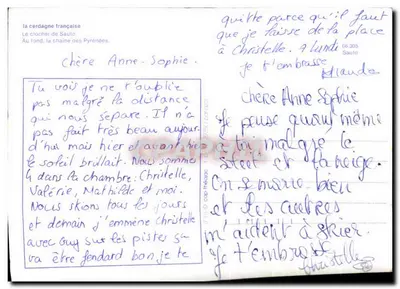 la cerdagne française
Le clocher de Sautó
Au fond, la chaîne des Pyrénées.
Chère Anne-Sophie.
Tu voi je ne t'oublie
pas malgré la distance
qui nous sépare. Il n'a
pas fait très beau aujour
d'hui mais hier et avant hier
le soleil brillait. Nous sommes
4 dans la chambre: Christelle,
Valérie, Mathilde et moi.
Nous skions tous les jours
et demain j'emmène Christelle
avec Guy sur les pistes sa
va être fendard bon je te
quitte parce qu'il faut
que je laisse de la place
à Christelle. a lundi
je t'embrasse
Chère Anne Sophie
Je pense quand même
à toi malgré la
et la neige.
On se marre bien
et les autres
m'aident à skier.
Je t'embrasse
Christelle